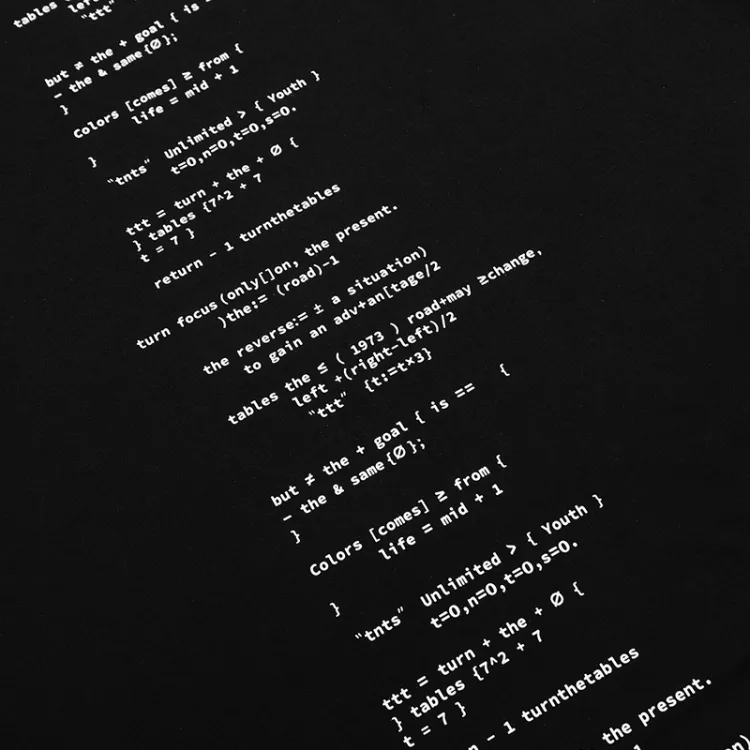 tables
"ttt"
but ≠ the + goal { is
- the & same{Ø};
}
Colors [comes] ≥ from {
life = mid + 1
}
"tnts" Unlimited > { Youth }
t=0,n=0,t=0,s=0.
ttt = turn + the + Ø {
} tables {7^2 + 7
t = 7 }
return - 1 turnthetables
turn focus(only[]on, the present.
)the:= (road)-1
the reverse:= ± a situation)
to gain an adv+an[tage/2
tables the ≤ ( 1973 ) road+may ≥change,
left +(right-left)/2
"ttt" {t:=t×3}
but ≠ the + goal { is == {
- the & same{Ø};
}
Colors [comes] ≥ from {
life = mid + 1
}
"tnts" Unlimited > { Youth }
t=0,n=0,t=0,s=0.
ttt = turn + the + Ø {
} tables {7^2 + 7
t = 7 }
- 1 turnthetables
the present.